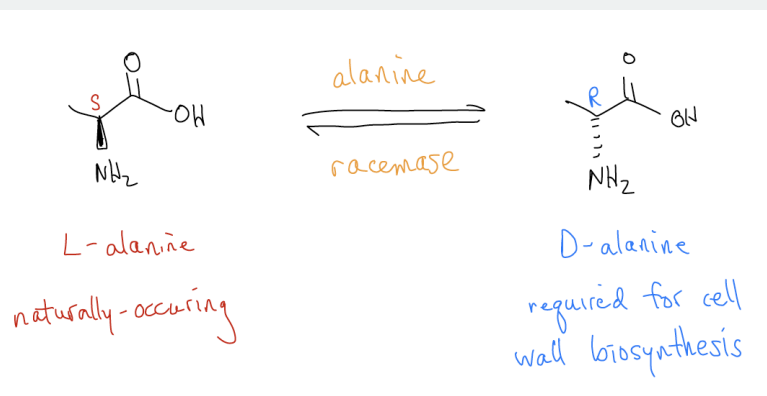 O
S
OH
NH₂
L-alanine
naturally-occuring
alanine
racemase
O
R
OH
NH₂
D-alanine
required for cell
wall biosynthesis